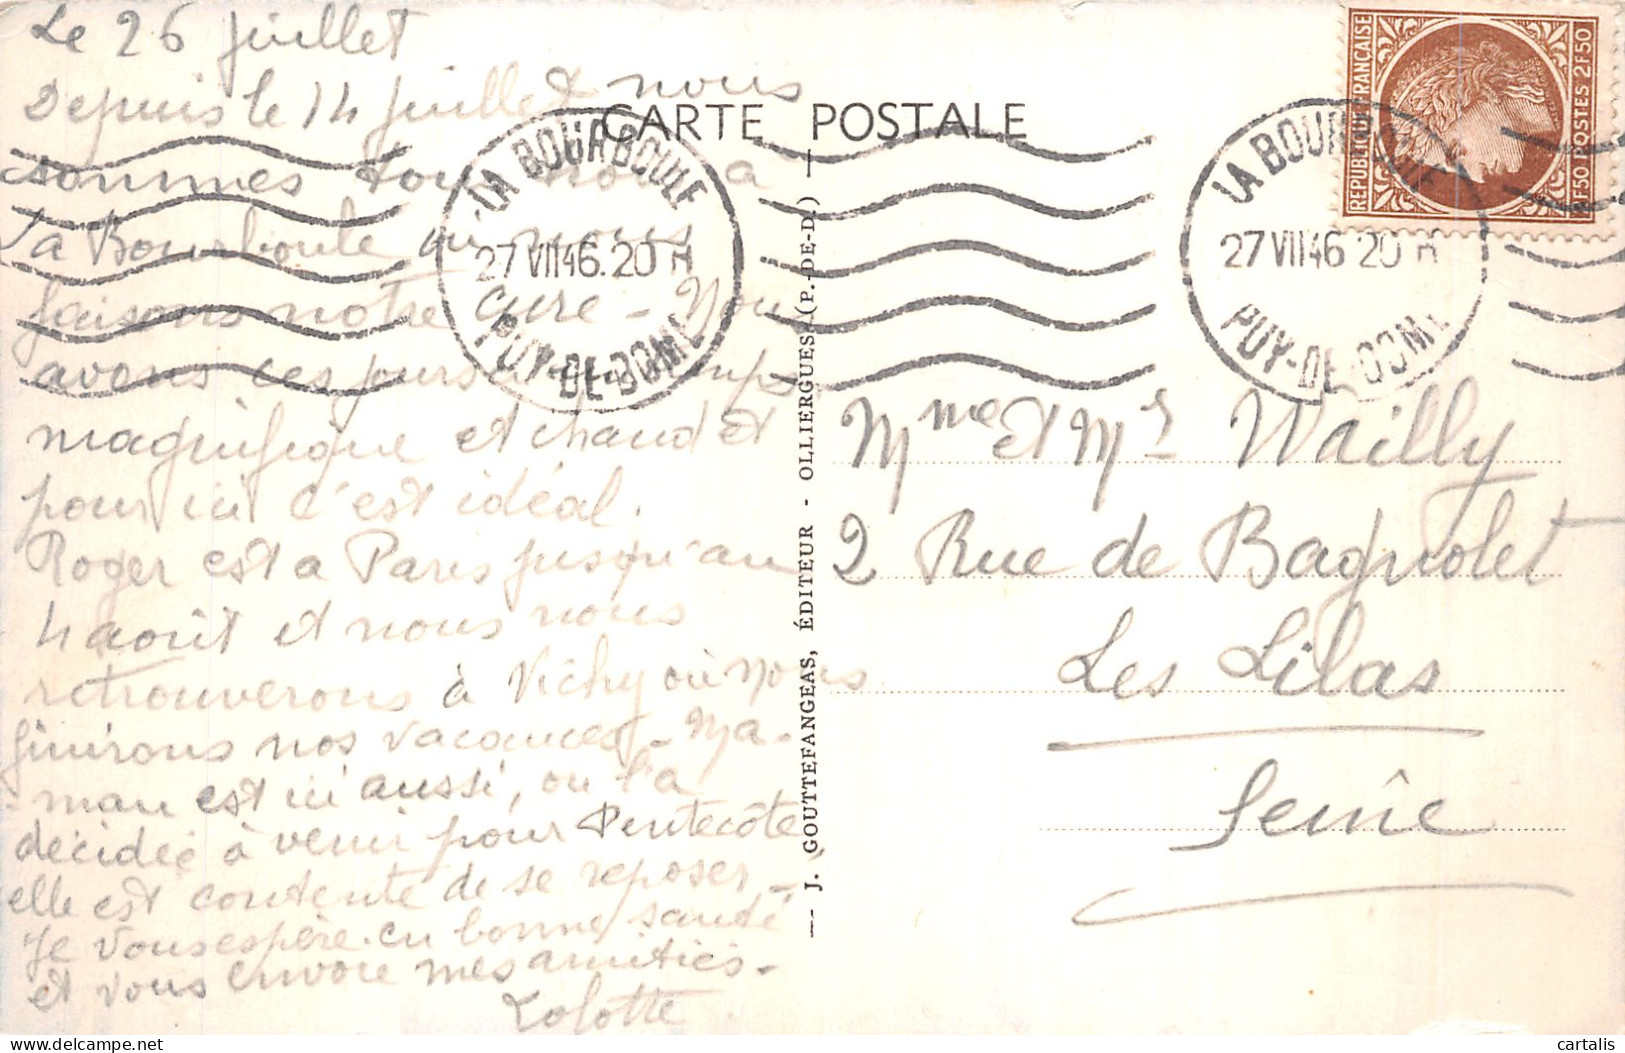 Le 26 juillet
Depuis le 14 juillet nous
sommes tous à
La Bourboule où nous
faisons notre cure - Nous
avons ces jours temps
magnifique et chaud et
pour ici c'est idéal.
Roger est à Paris jusqu'au
4 août et nous nous
retrouverons à Vichy où nous
finirons nos vacances - Ma-
man est ici aussi, on l'a
décidée à venir pour Pentecôte,
elle est contente de se reposer -
Je vous espère en bonne santé
et vous envoie mes amitiés -
Lolotte
CARTE POSTALE
LA BOURBOULE
27 VII 46. 20 H
PUY-DE-DOME
— J. GOUTTEFANGEAS, ÉDITEUR - OLLIERGUES (P.-DE-D.) —
REPUBLIQUE FRANCAISE
2F50 POSTES 2F50
LA BOURBOULE
27 VII 46 20 H
PUY-DE-DOME
Mme et Mr Wailly
2 Rue de Bagnolet
Les Lilas
Seine
cartalis
delcampe.net